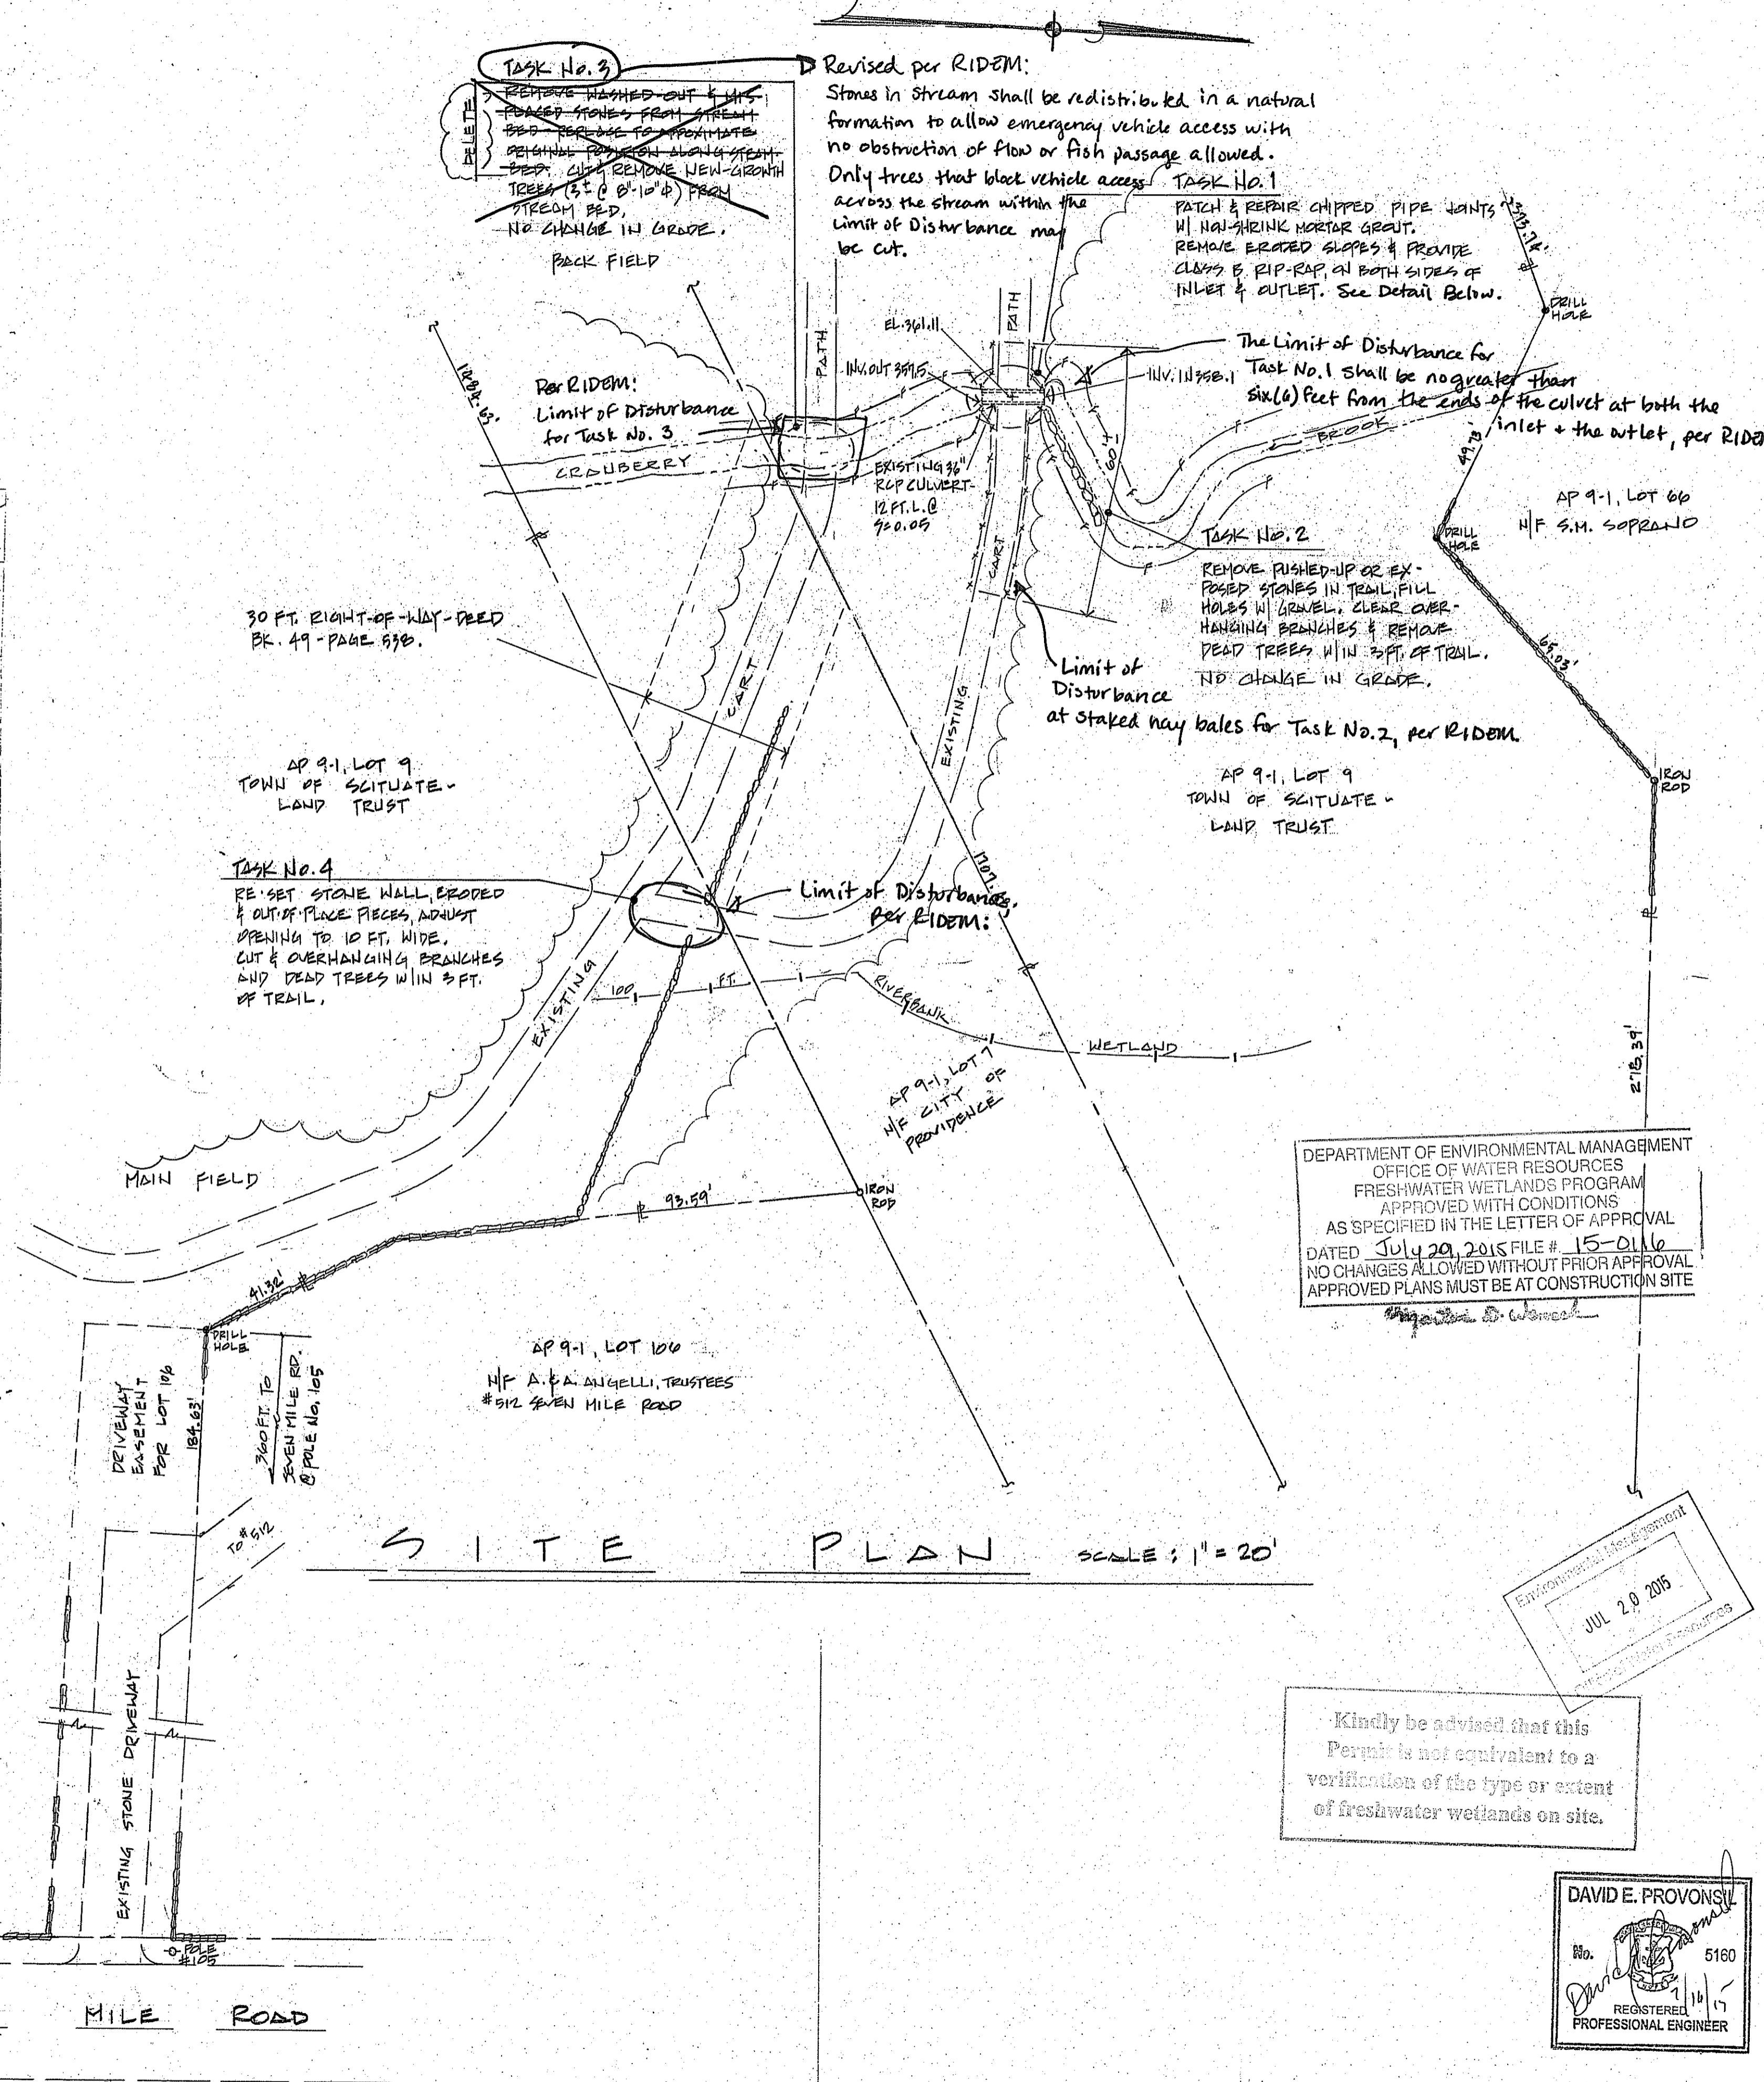 TASK No. 3
DELETE
REMOVE WASHED-OUT & MIS-
PLACED STONES FROM STREAM
BED - REPLACE TO APPOXIMATE
ORIGINAL POSITION ALONG STEAM
BED. CUT & REMOVE NEW-GROWTH
TREES (3± @ 8"-10"Φ) FROM
STREAM BED.
NO CHANGE IN GRADE.
BACK FIELD
Revised per RIDEM:
Stones in stream shall be redistributed in a natural
formation to allow emergency vehicle access with
no obstruction of flow or fish passage allowed.
Only trees that block vehicle access
across the stream within the
Limit of Disturbance may
be cut.
TASK No. 1
PATCH & REPAIR CHIPPED PIPE JOINTS
W/ NON-SHRINK MORTAR GROUT.
REMOVE ERODED SLOPES & PROVIDE
CLASS B RIP-RAP, ON BOTH SIDES OF
INLET & OUTLET. See Detail Below.
DRILL
HOLE
PATH
PATH
EL. 361.11
INV. OUT 357.5
INV. IN 358.1
The Limit of Disturbance for
Task No. 1 shall be no greater than
six (6) feet from the ends of the culvet at both the
inlet + the outlet, per RIDE
Per RIDEM:
Limit of Disturbance
for Task No. 3
CRANBERRY
BROOK
49.73
EXISTING 36"
RCP CULVERT
12 FT. L. @
S=0.05
60'±
AP 9-1, LOT 66
N/F S.M. SOPRANO
DRILL
HOLE
TASK No. 2
REMOVE PUSHED-UP OR EX-
POSED STONES IN TRAIL, FILL
HOLES W/ GRAVEL. CLEAR OVER-
HANGING BRANCHES & REMOVE
DEAD TREES W/IN 3 FT. OF TRAIL.
NO CHANGE IN GRADE.
CART
30 FT. RIGHT-OF-WAY-DEED
BK. 49 - PAGE 538.
65.03'
Limit of
Disturbance
at staked hay bales for Task No. 2, per RIDEM
CART
EXISTING
AP 9-1, LOT 9
TOWN OF SCITUATE -
LAND TRUST
AP 9-1, LOT 9
TOWN OF SCITUATE -
LAND TRUST
IRON
ROD
TASK No. 4
RE-SET STONE WALL, ERODED
& OUT-OF-PLACE PIECES, ADJUST
OPENING TO 10 FT. WIDE.
CUT & OVERHANGING BRANCHES
AND DEAD TREES W/IN 3 FT.
OF TRAIL.
Limit of Disturbance,
per RIDEM:
EXISTING
100 FT.
RIVERBANK
WETLAND
278.39'
AP 9-1, LOT 7
N/F CITY OF
PROVIDENCE
MAIN FIELD
93.59'
IRON
ROD
DEPARTMENT OF ENVIRONMENTAL MANAGEMENT
OFFICE OF WATER RESOURCES
FRESHWATER WETLANDS PROGRAM
APPROVED WITH CONDITIONS
AS SPECIFIED IN THE LETTER OF APPROVAL
DATED July 29, 2015 FILE # 15-0116
NO CHANGES ALLOWED WITHOUT PRIOR APPROVAL
APPROVED PLANS MUST BE AT CONSTRUCTION SITE
41.32'
DRILL
HOLE
AP 9-1, LOT 106
N/F A. & A. ANGELLI, TRUSTEES
#512 SEVEN MILE ROAD
DRIVEWAY
EASEMENT
FOR LOT 106
184.63'
360 FT. TO
SEVEN MILE RD.
@ POLE No. 105
TO #512
SITE PLAN SCALE: 1" = 20'
Environmental Management
JUL 20 2015
Kindly be advised that this
Permit is not equivalent to a
verification of the type or extent
of freshwater wetlands on site.
EXISTING STONE DRIVEWAY
POLE
#105
MILE ROAD
DAVID E. PROVONSIL
No. 5160
David Provonsil
7/16/15
REGISTERED
PROFESSIONAL ENGINEER